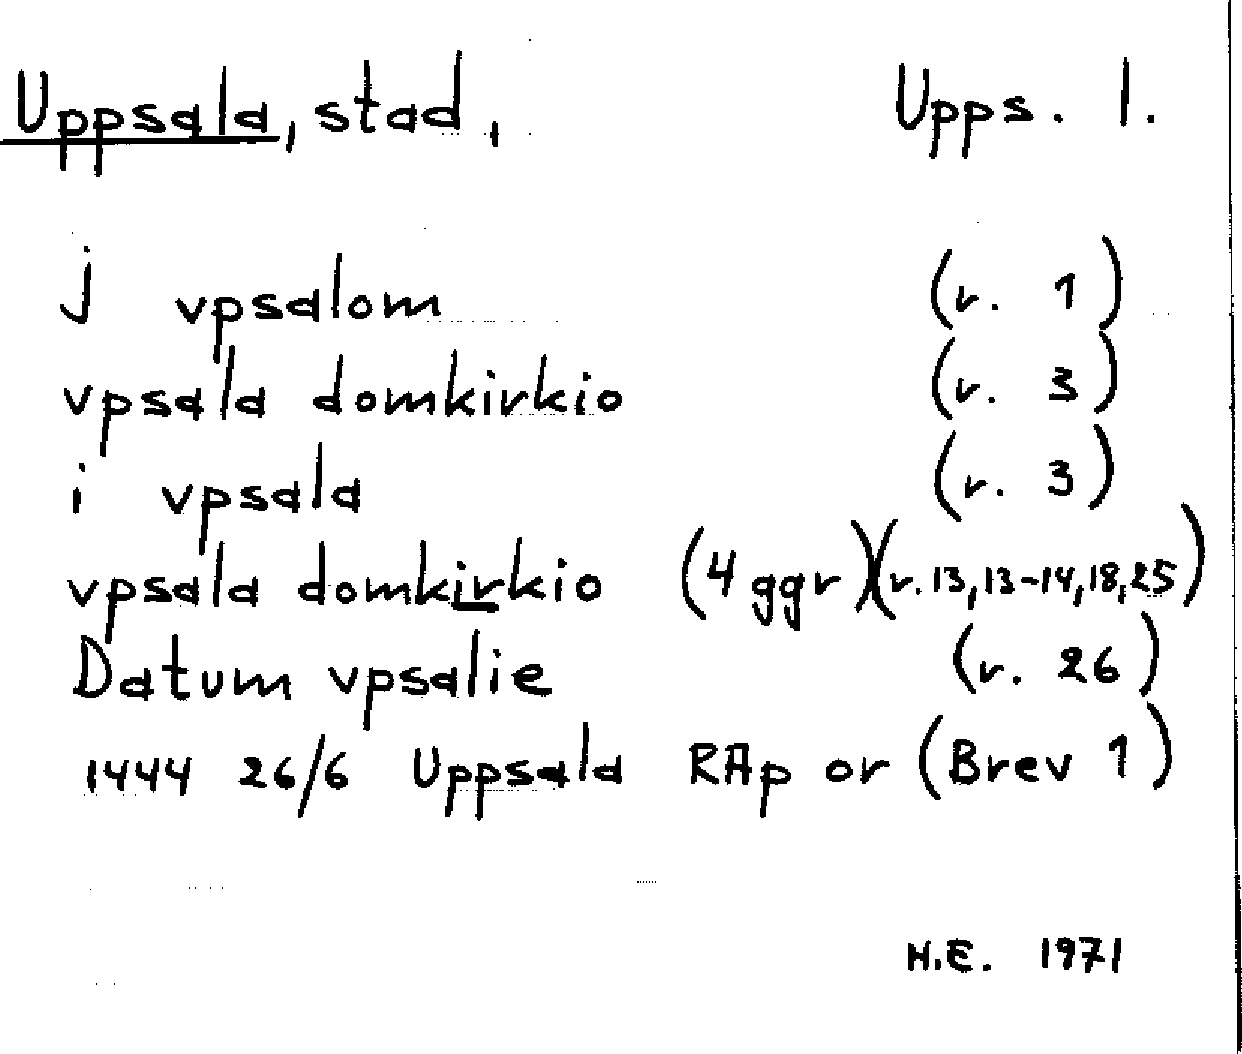 Uppsala, stad, Upps. l.
j vpsalom (r. 1)
vpsala domkirkio (r. 3)
i vpsala (r. 3)
vpsala domkirkio (4 ggr)(r. 13, 13-14, 18, 25)
Datum vpsalie (r. 26)
1444 26/6 Uppsala RAp or (Brev 1)
H.E. 1971